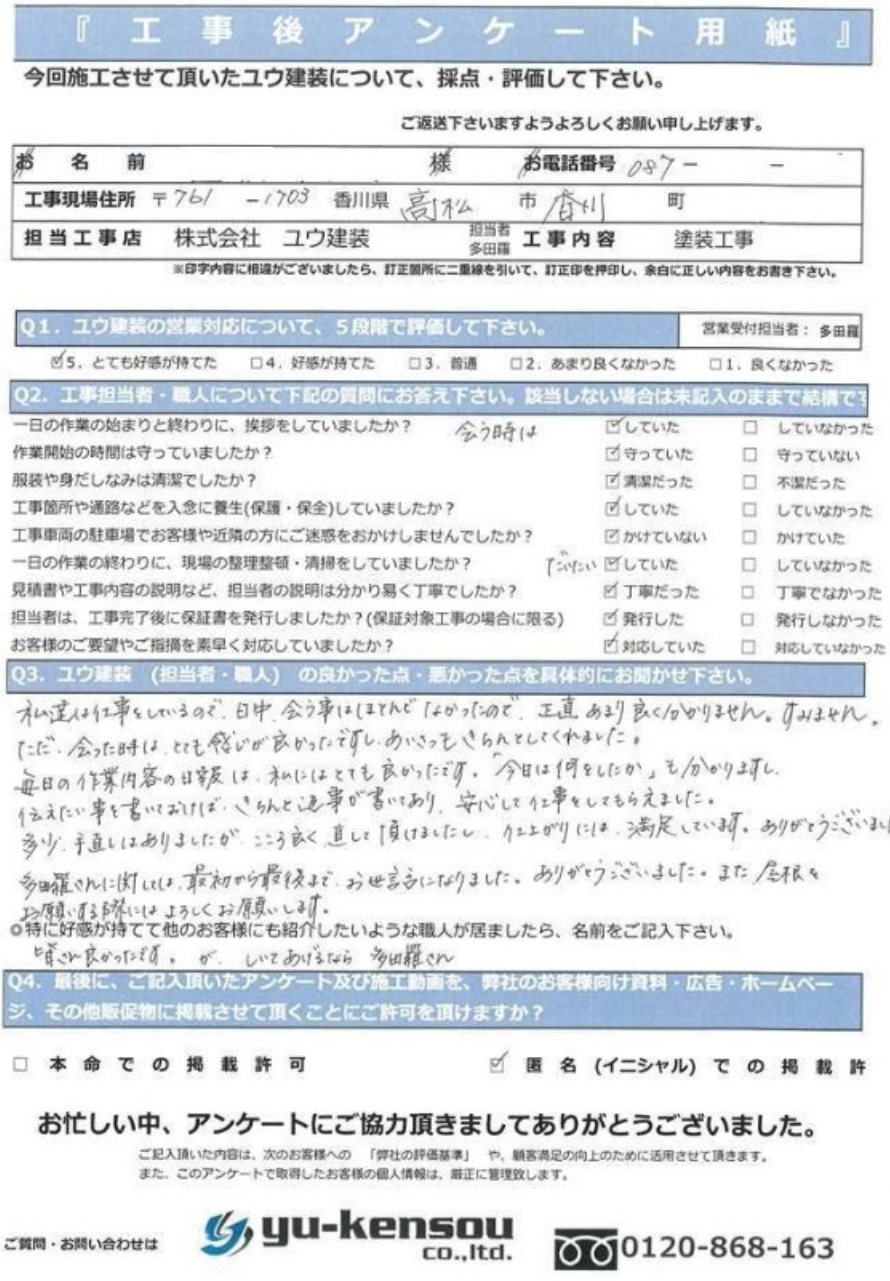 『工事後アンケート用紙』
今回施工させて頂いたユウ建装について、採点・評価して下さい。
ご返送下さいますようよろしくお願い申し上げます。
お名前 様 お電話番号 087- -
工事現場住所 〒761-1703 香川県 高松 市 香川 町
担当工事店 株式会社 ユウ建装 担当者 多田羅 工事内容 塗装工事
※印字内容に相違がございましたら、訂正箇所に二重線を引いて、訂正印を押印し、余白に正しい内容をお書き下さい。
Q1. ユウ建装の営業対応について、5段階で評価して下さい。 営業受付担当者: 多田羅
☑5. とても好感が持てた □4. 好感が持てた □3. 普通 □2. あまり良くなかった □1. 良くなかった
Q2. 工事担当者・職人について下記の質問にお答え下さい。該当しない場合は未記入のままで結構です
一日の作業の始まりと終わりに、挨拶をしていましたか? 会う時は ☑していた □ していなかった
作業開始の時間は守っていましたか? ☑守っていた □ 守っていない
服装や身だしなみは清潔でしたか? ☑清潔だった □ 不潔だった
工事箇所や通路などを入念に養生(保護・保全)していましたか? ☑していた □ していなかった
工事車両の駐車場でお客様や近隣の方にご迷惑をおかけしませんでしたか? ☑かけていない □ かけていた
一日の作業の終わりに、現場の整理整頓・清掃をしていましたか? だいたい ☑していた □ していなかった
見積書や工事内容の説明など、担当者の説明は分かり易く丁寧でしたか? ☑丁寧だった □ 丁寧でなかった
担当者は、工事完了後に保証書を発行しましたか?(保証対象工事の場合に限る) ☑発行した □ 発行しなかった
お客様のご要望やご指摘を素早く対応していましたか? ☑対応していた □ 対応していなかった
Q3. ユウ建装 (担当者・職人) の良かった点・悪かった点を具体的にお聞かせ下さい。
私達は仕事をしているので、日中、会う事はほとんどなかったので、正直あまり良く分かりません。すみません。
ただ、会った時は、とても感じが良かったですし、あいさつもきちんとしてくれました。
毎日の作業内容の日報は、私にはとても良かったです。「今日は何をしたか」も分かりますし、
伝えたい事を書いておけば、きちんと返事が書いてあり、安心して仕事をしてもらえました。
多少、手直しはありましたが、こころ良く直して頂けましたし、仕上がりには、満足しています。ありがとうございまし
多田羅さんに関しては、最初から最後まで、お世話になりました。ありがとうございました。また屋根を
お願いする際にはよろしくお願いします。
◎特に好感が持てて他のお客様にも紹介したいような職人が居ましたら、名前をご記入下さい。
皆さん良かったです。が、しいてあげるなら 多田羅さん
Q4. 最後に、ご記入頂いたアンケート及び施工動画を、弊社のお客様向け資料・広告・ホームペー
ジ、その他販促物に掲載させて頂くことにご許可を頂けますか?
□ 本命での掲載許可 ☑ 匿名(イニシャル)での掲載許
お忙しい中、アンケートにご協力頂きましてありがとうございました。
ご記入頂いた内容は、次のお客様への 「弊社の評価基準」 や、顧客満足の向上のために活用させて頂きます。
また、このアンケートで取得したお客様の個人情報は、厳正に管理致します。
ご質問・お問い合わせは yu-kensou co.,ltd. 0120-868-163